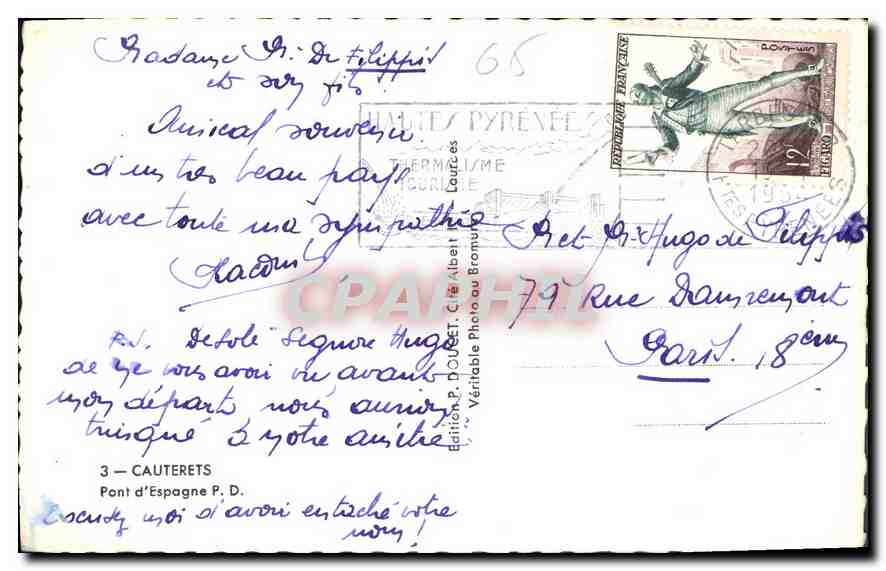 Madame M. De Filippis
et son fils
Amical souvenir
d'un tres beau pays
avec toute ma sympathie
P.S. Désolé Segnore Hugo
de ne vous avoir vu avant
mon départ, nous aurions
trinqué à notre amitié
3 — CAUTERETS
Pont d'Espagne P. D.
Excusez moi d'avoir entaché votre
nom!
65
HAUTES PYRÉNÉES
THERMALISME
TOURISME
Edition P. DOUCET, Cité Albert Lourdes
Véritable Photo au Bromure
REPUBLIQUE FRANÇAISE
POSTES
12F
FIGARO
TARBES
HTES PYRENEES
M et Mme Hugo de Filippis
79 Rue Damremont
Paris. 18ème
CPARHIL